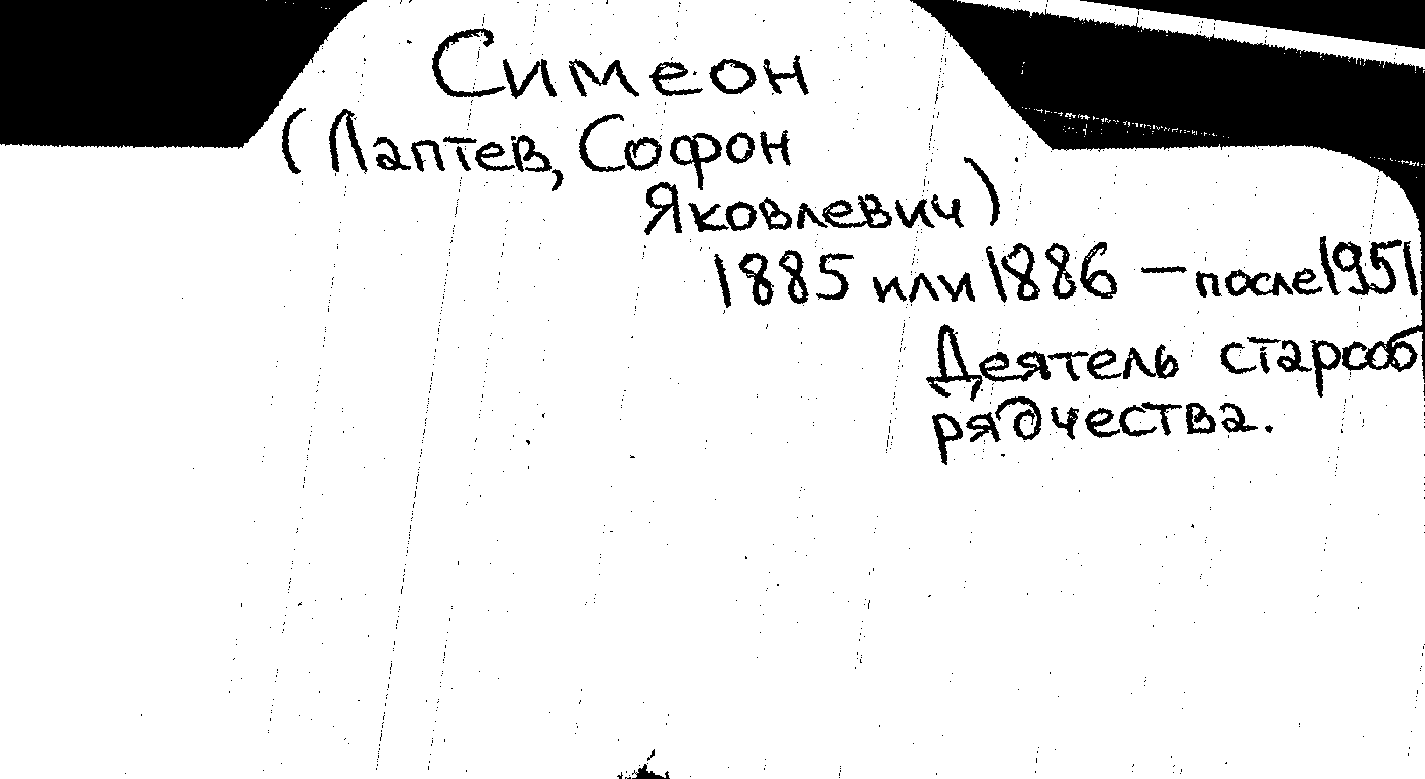 Симеон
(Лаптев, Софон
Яковлевич)
1885 или 1886 – после 1951
Деятель старооб
рядчества.